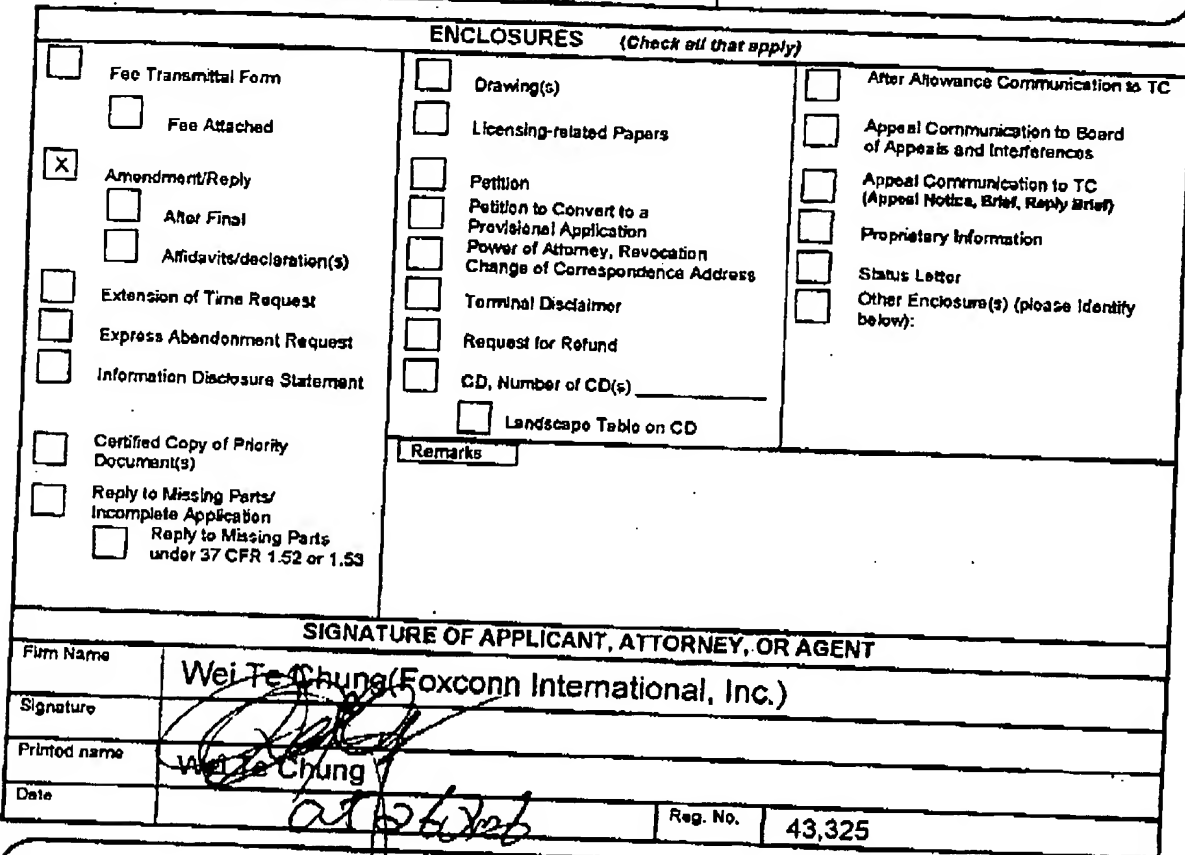 ENCLOSURES (Check all that apply)
Fee Transmittal Form
Fee Attached
X Amendment/Reply
After Final
Affidavits/declaration(s)
Extension of Time Request
Express Abandonment Request
Information Disclosure Statement
Certified Copy of Priority
Document(s)
Reply to Missing Parts/
Incomplete Application
Reply to Missing Parts
under 37 CFR 1.52 or 1.53
Drawing(s)
Licensing-related Papers
Petition
Petition to Convert to a
Provisional Application
Power of Attorney, Revocation
Change of Correspondence Address
Terminal Disclaimer
Request for Refund
CD, Number of CD(s)
Landscape Table on CD
After Allowance Communication to TC
Appeal Communication to Board
of Appeals and Interferences
Appeal Communication to TC
(Appeal Notice, Brief, Reply Brief)
Proprietary Information
Status Letter
Other Enclosure(s) (please Identify
below):
Remarks
SIGNATURE OF APPLICANT, ATTORNEY, OR AGENT
Firm Name Wei Te Chung(Foxconn International, Inc.)
Signature
Printed name Wei Te Chung
Date
Reg. No. 43,325